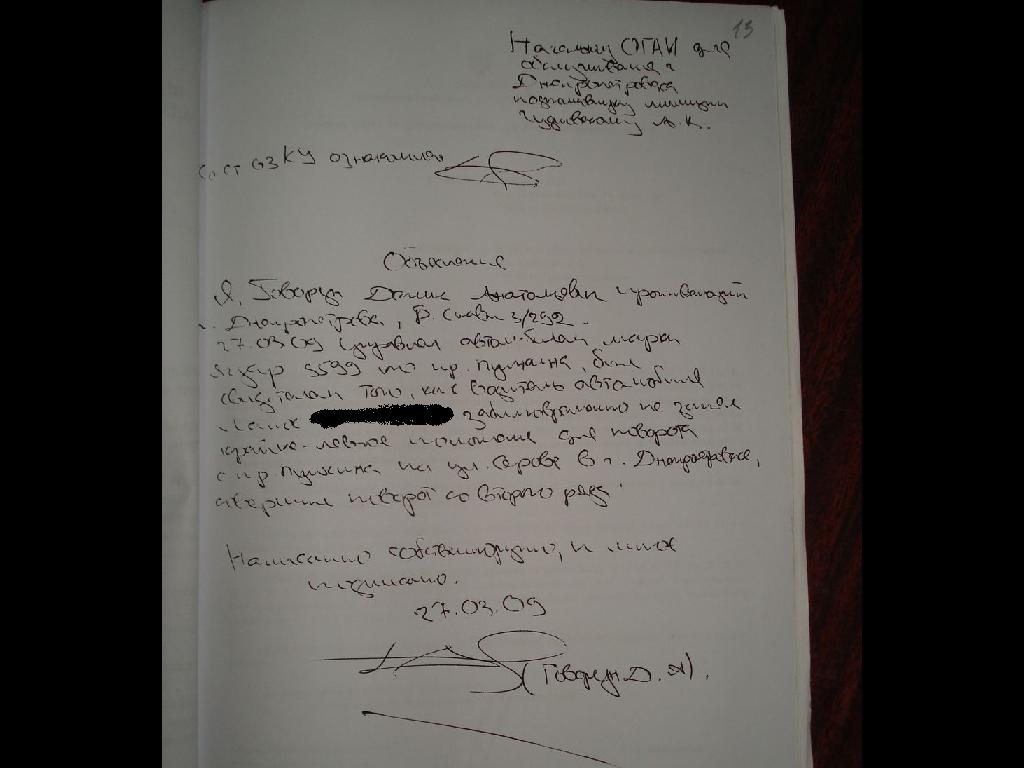 13
Начальнику ОГАИ для
обслуживания г.
Днепропетровска
подполковнику милиции
Чудивскому А.К.
Со ст 63 КУ ознакомлен
Объяснение
Я, Говоруха Денис Анатольевич проживающий
г. Днепропетровск, 3/292
27.03.09 управляя автомобилем марки
3599 по пр. Пушкина, был
свидетелем того, как водитель автомобиля
заблаговременно не занял
крайне-левое положение для поворота
с пр. Пушкина на ул. Серова в г. Днепропетровске,
совершив поворот со второго ряда.
Написано собственноручно, и мною
подписано.
27.03.09
Д. А).